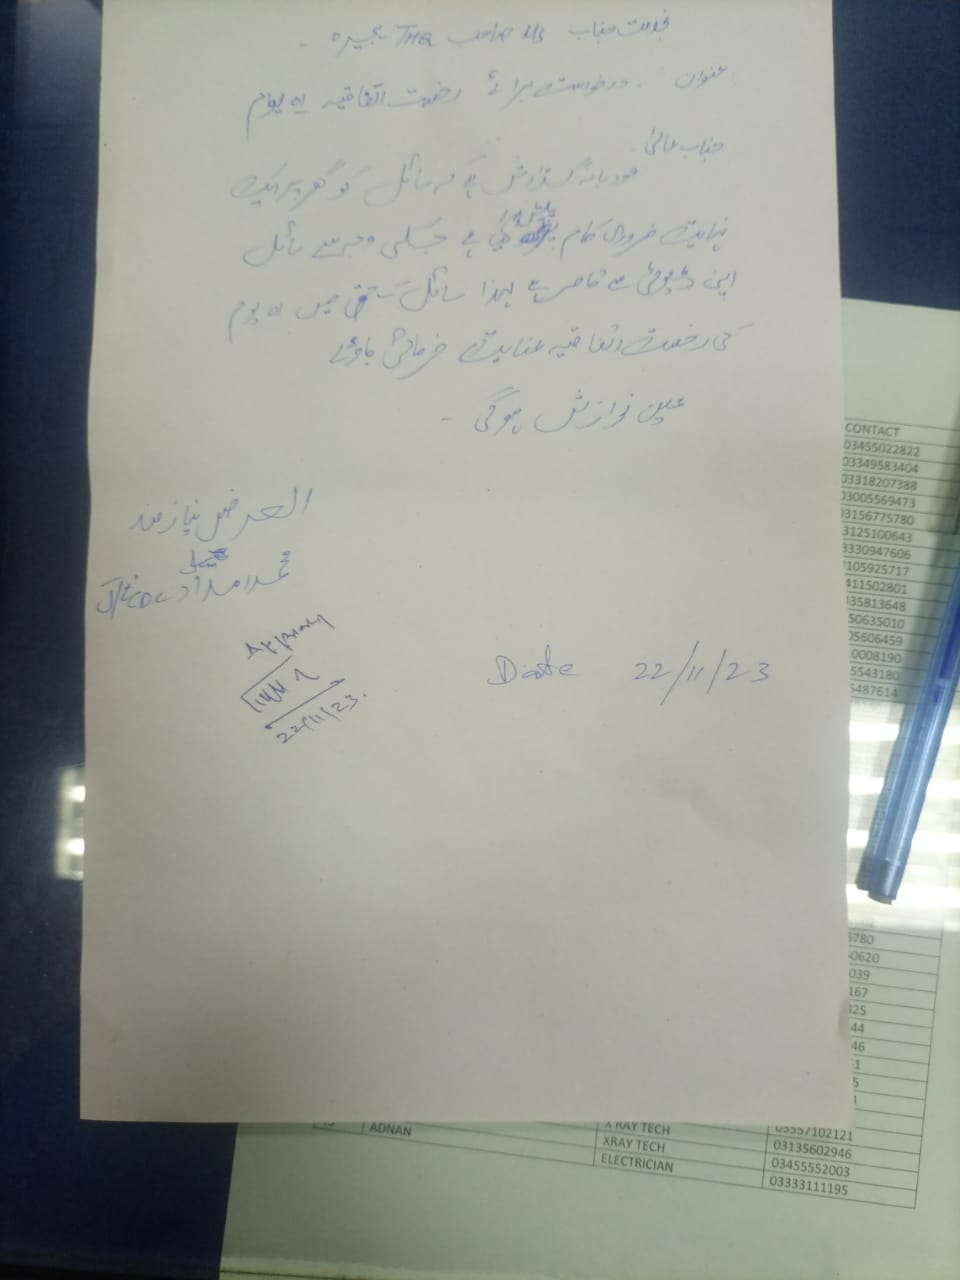 بخدمت جناب MS صاحب THQ ہجیرہ ۔
عنوان ۔ درخواست برائے رخصت اتفاقیہ 01 یوم
جناب عالیٰ ۔
مودبانہ گزارش ہے کہ سائل کو گھر پر ایک
نہایت ضروری کام پیش آ گیا ہے جسکی وجہ سے سائل
اپنی ڈیوٹی سے قاصر ہے لہذا سائل کے حق میں 01 یوم
کی رخصت اتفاقیہ عنایت فرمائی جاوئے
عین نوازش ہوگی ۔
العرض نیازمند
محمد امداد
22/11/23
Date 22/11/23
CONTACT
03455022822
03349583404
03318207388
03005569473
03156775780
3125100643
3330947606
105925717
411502801
35813648
50635010
05606459
10008190
5543180
5487614
5780
60620
039
167
325
44
46
1
5
X RAY TECH 03557102121
ADNAN XRAY TECH 03135602946
ELECTRICIAN 03455552003
03333111195